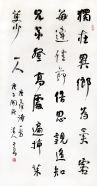 獨在異鄉為異客
每逢佳節倍思親遙知
兄弟登高處遍插茱
萸少一人